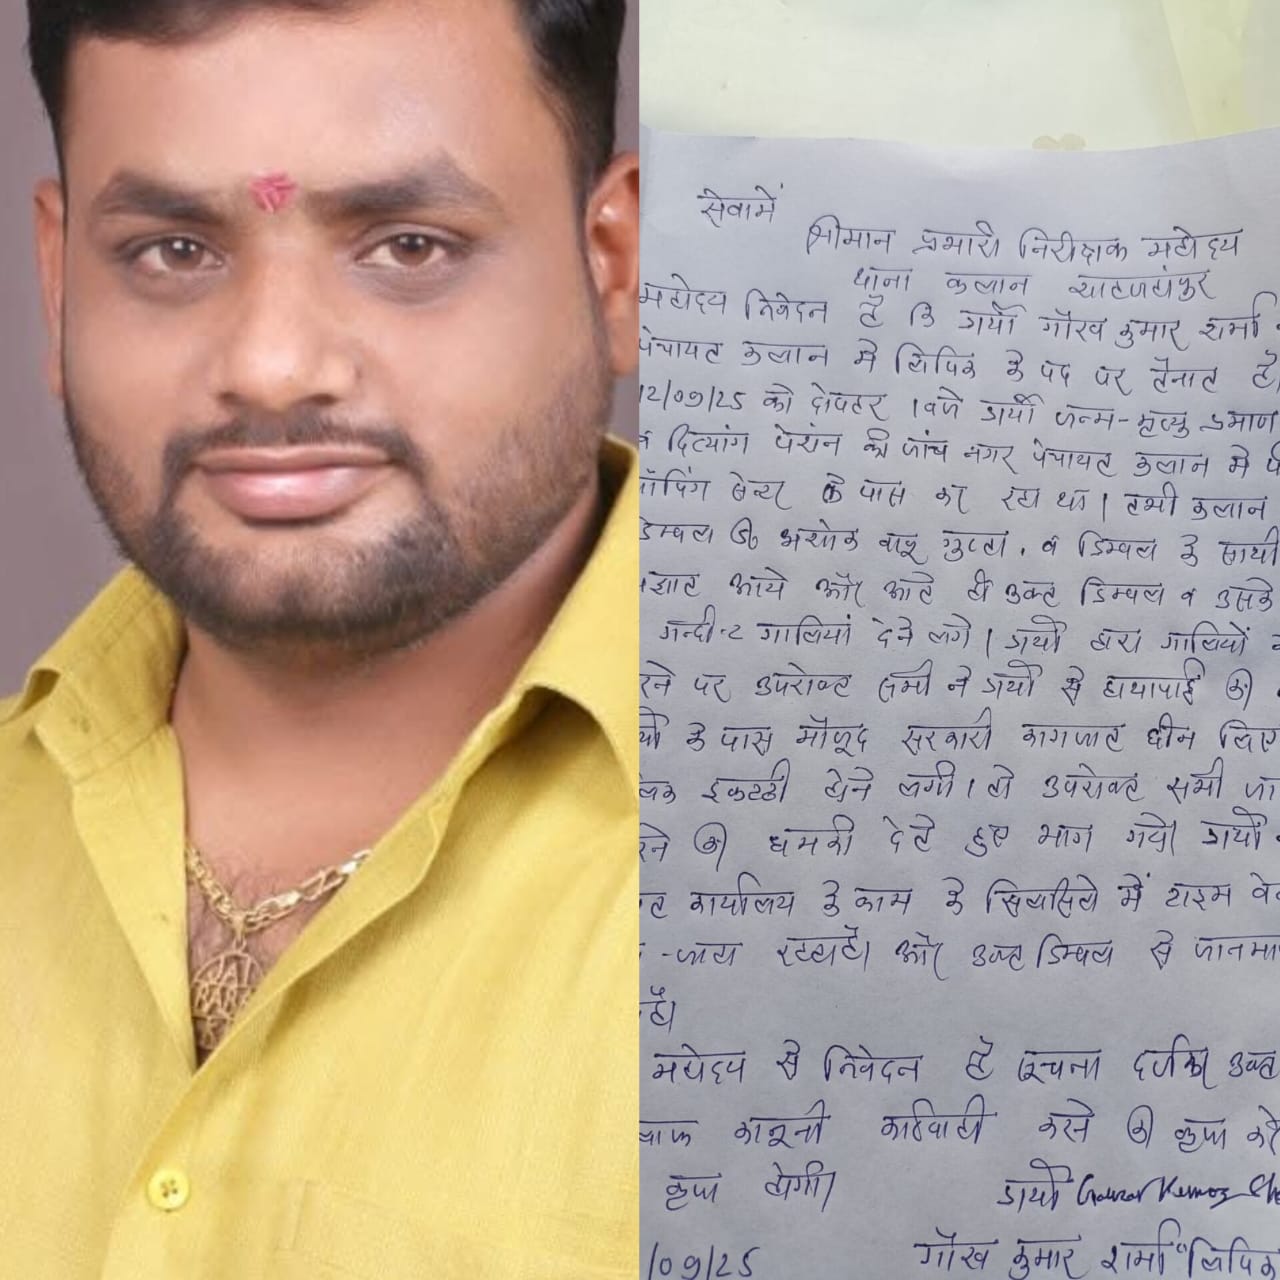 सेवामें
श्रीमान प्रभारी निरीक्षक महोदय
थाना कलान शाहजहांपुर
महोदय निवेदन है कि प्रार्थी गौरव कुमार शर्मा
पंचायत कलान मे लिपिक के पद पर तैनात है।
12/09/25 को दोपहर 1 बजे प्रार्थी जन्म-मृत्यु प्रमाण
व दिव्यांग पेंशन की जांच नगर पंचायत कलान मे
शॉपिंग सेन्टर के पास कर रहा था। तभी कलान
डिम्पल S/o अशोक बाबू गुप्ता, व डिम्पल के साथी
अज्ञात आये और आते ही उक्त डिम्पल व उसके
गन्दी-2 गालियां देने लगे। प्रार्थी द्वारा गालियों
रने पर उपरोक्त सभी ने प्रार्थी से हाथापाई की
र्थी के पास मौजूद सरकारी कागजात छीन लिए
लिक इकट्ठी होने लगी। तो उपरोक्त सभी जा
रने की धमकी देते हुए भाग गये। प्रार्थी
कार्यालय के काम के सिलसिले में टाइम वे
-जाता रहता है। और उक्त डिम्पल से जानमा
है।
महोदय से निवेदन है सूचना दर्ज कर उक्त
लाफ कानूनी कार्यवाही करने की कृपा करे
कृपा होगी।
प्रार्थी Gaurav Kumar Sha
/09/25 गौरव कुमार शर्मा "लिपिक